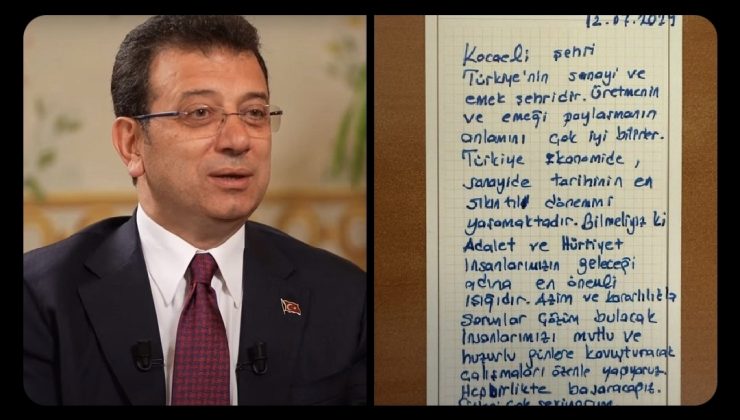 Kocaeli şehri
Türkiye'nin sanayi ve
emek şehridir. Üretmenin
ve emeği paylaşmanın
anlamını çok iyi bilirler.
Türkiye Ekonomide,
sanayide tarihinin en
sıkıntılı dönemini
yaşamaktadır. Bilmeliyiz ki
Adalet ve Hürriyet
insanlarımızın geleceği
adına en önemli
ışığıdır. Azim ve kararlılıkla
sorunlar çözüm bulacak
insanlarımızı mutlu ve
huzurlu günlere kavuşturacak
çalışmaları özenle yapıyoruz.
Hep birlikte başaracağız.